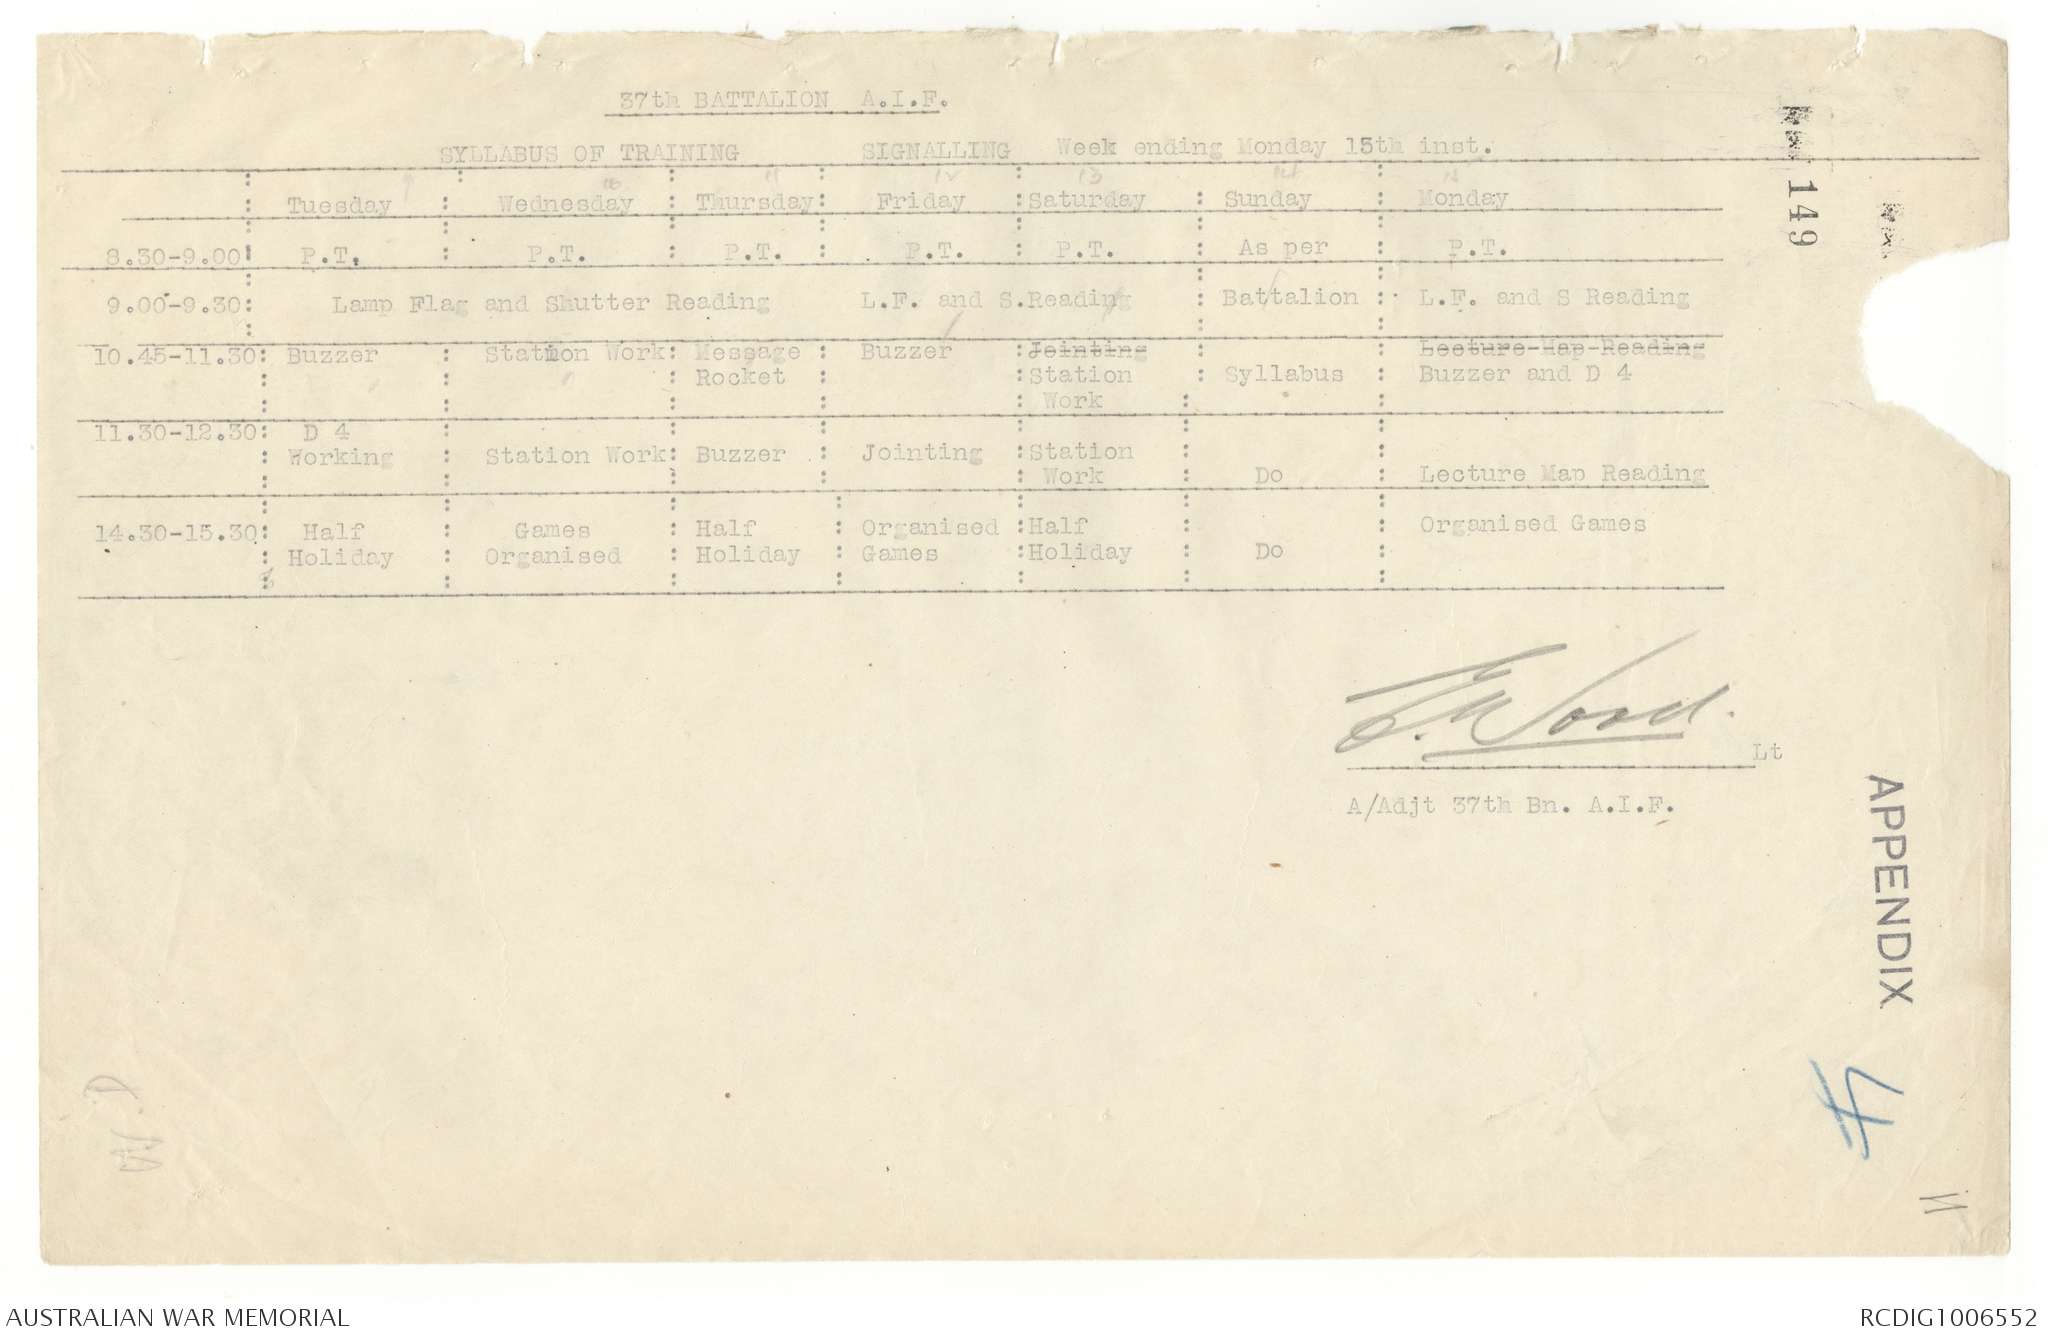 37th BATTALION A.I.F.
SYLLABUS OF TRAINING SIGNALLING Week ending Monday 15th inst.
9 10 11 12 13 14 15
Tuesday : Wednesday : Thursday : Friday : Saturday : Sunday : Monday
8.30-9.00 : P.T. : P.T. : P.T. : P.T. : P.T. : As per : P.T.
9.00-9.30 : Lamp Flag and Shutter Reading L.F. and S.Reading : Battalion : L.F. and S Reading
10.45-11.30 : Buzzer Station Work : Message : Buzzer : Jointing : Lecture Map Reading
Rocket : Station : Syllabus : Buzzer and D 4
Work
11.30-12.30 : D 4
Working : Station Work : Buzzer : Jointing : Station
Work : Do Lecture Map Reading
14.30-15.30 : Half : Games : Half : Organised : Half : Organised Games
Holiday : Organised : Holiday : Games : Holiday : Do
E. Wood.
Lt
A/Adjt 37th Bn. A.I.F.
149
APPENDIX
4
AUSTRALIAN WAR MEMORIAL
RCDIG1006552